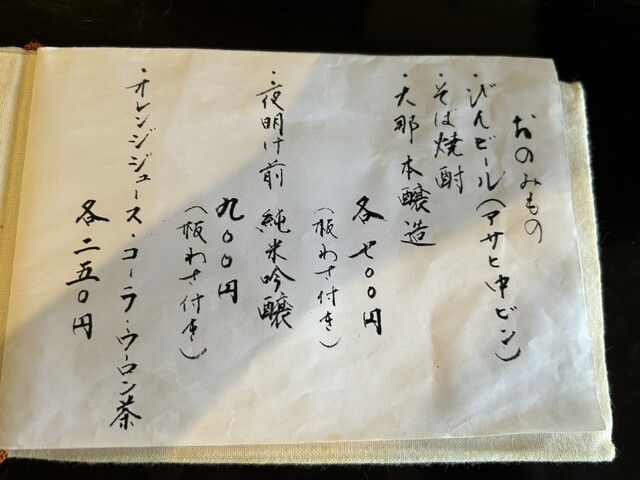 おのみもの
・びんビール(アサヒ中ビン)
・そば焼酎
・大那 本醸造
各七〇〇円
(板わさ付き)
・夜明け前 純米吟醸
九〇〇円
(板わさ付き)
・オレンジジュース・コーラ・ウーロン茶
各二五〇円